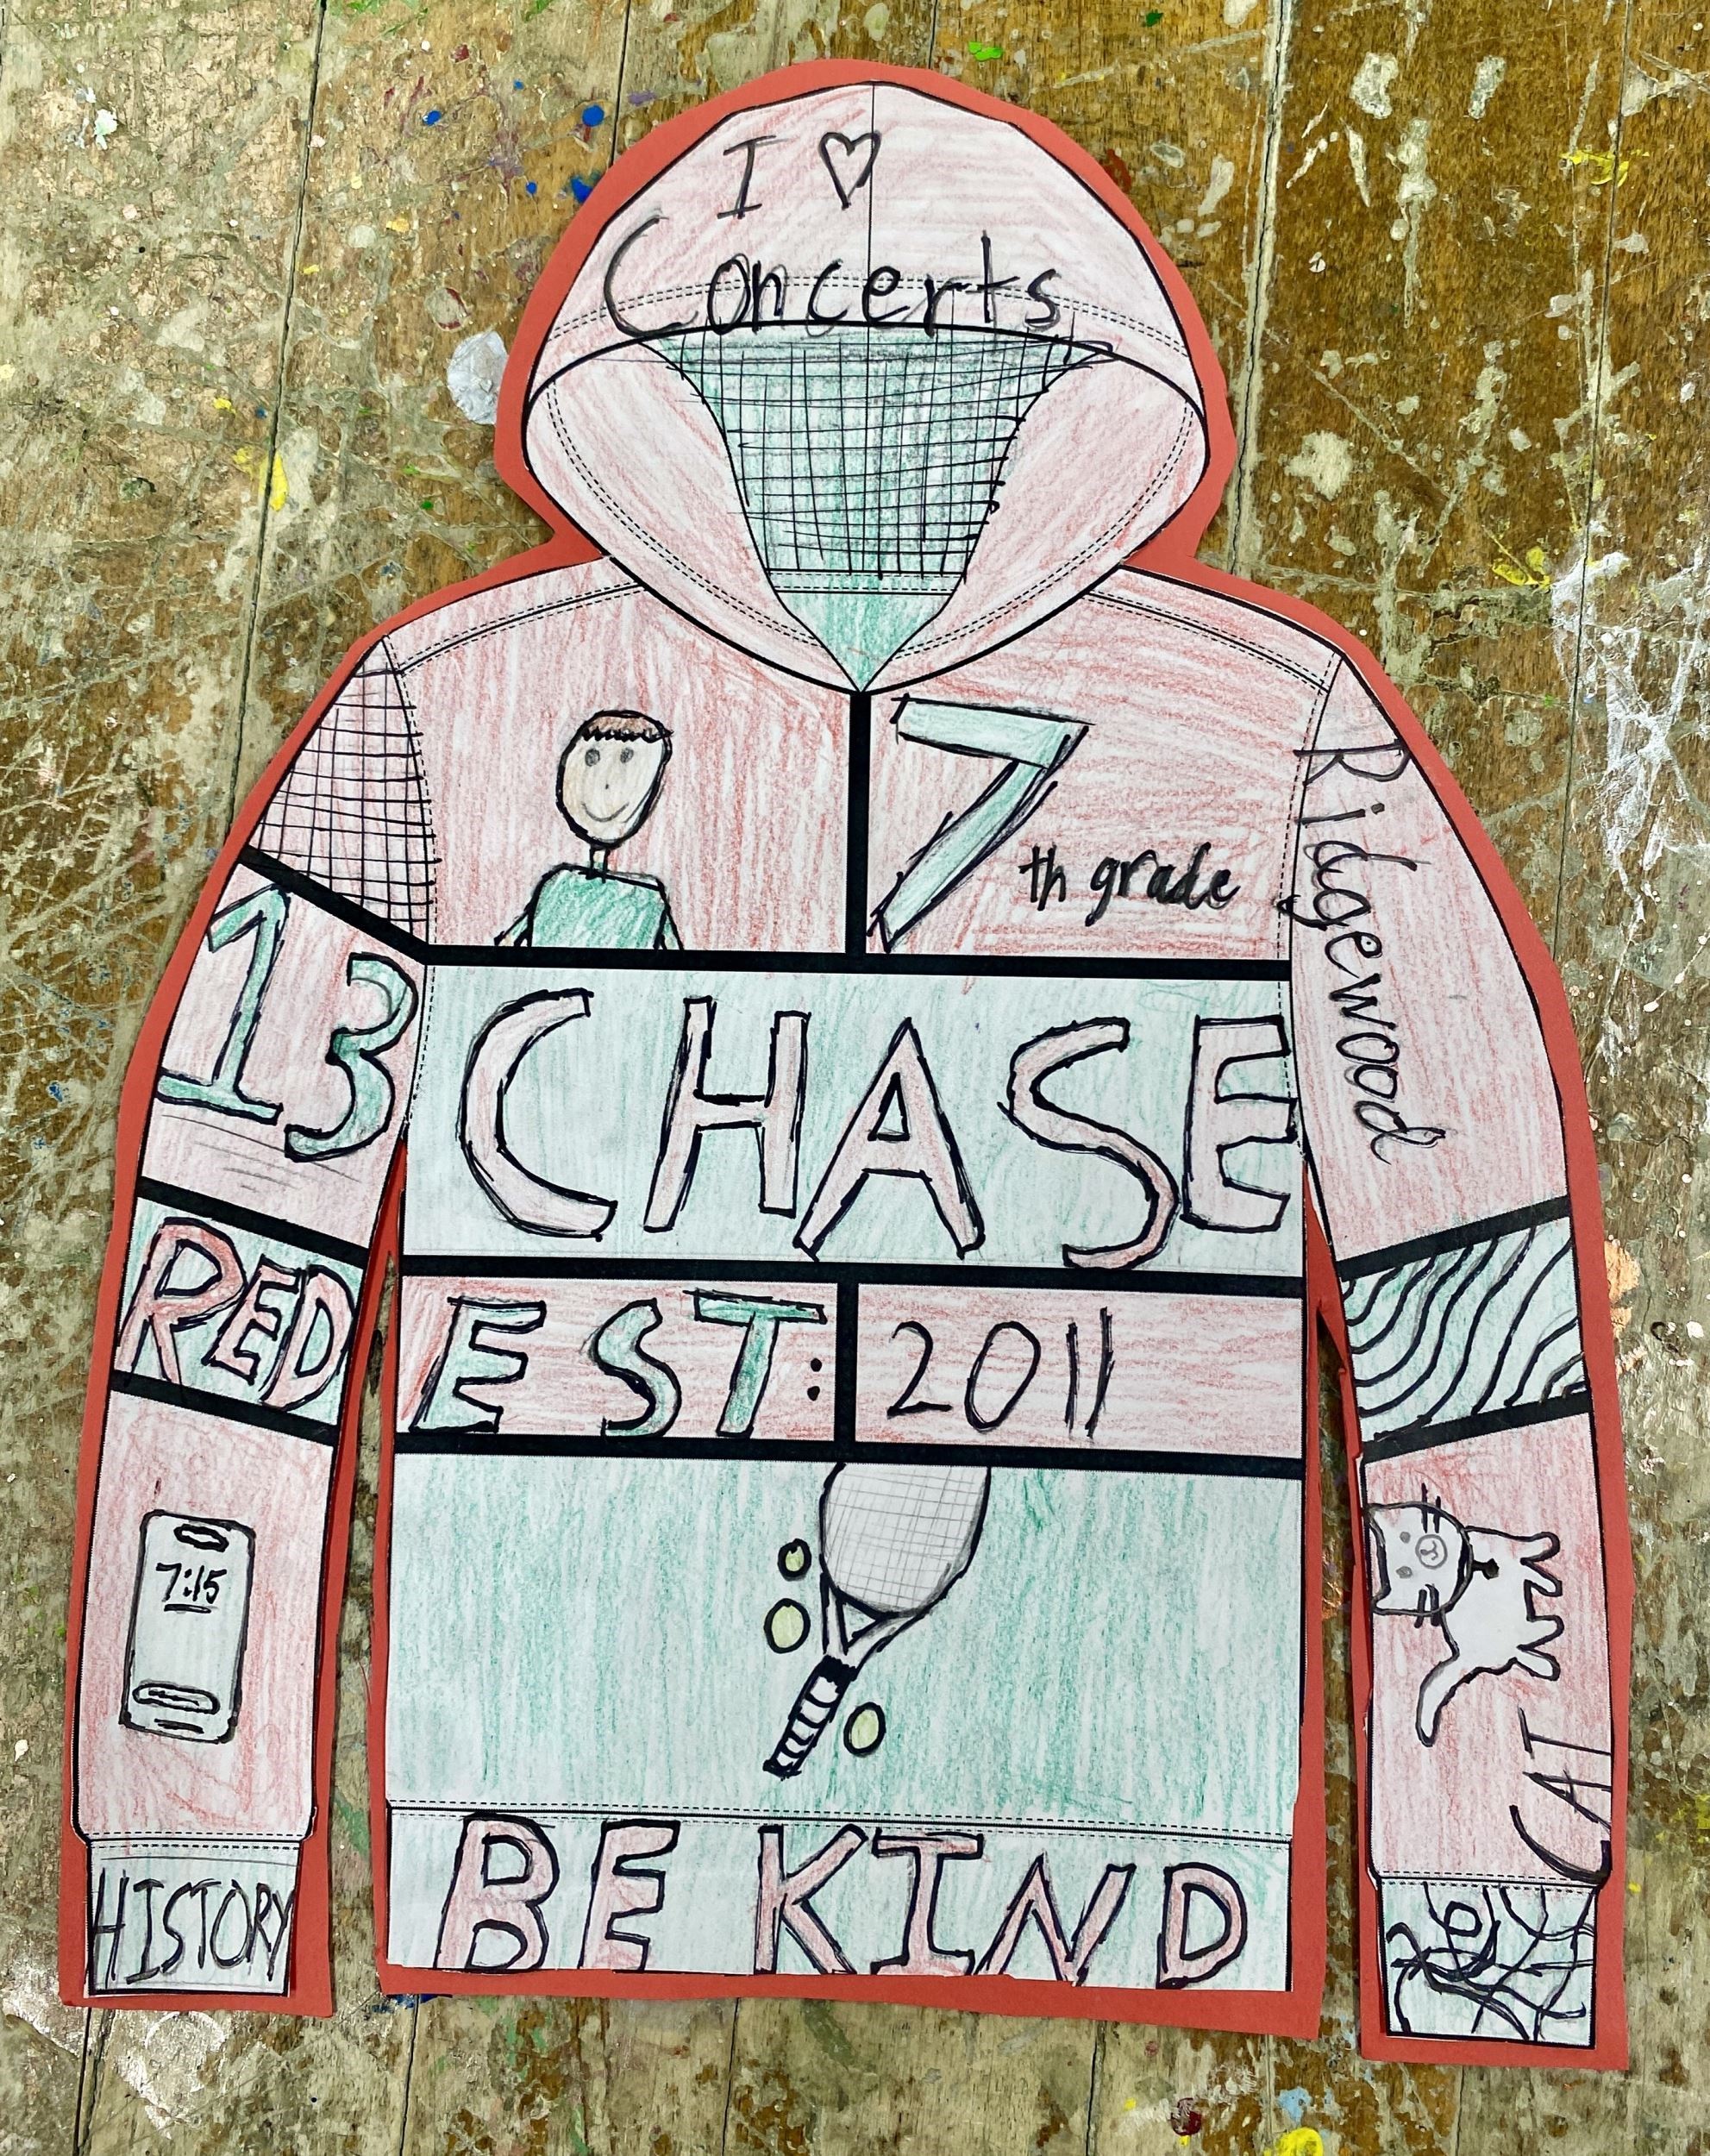 I ♡
Concerts
7
th grade
Ridgewood
13
CHASE
RED
EST:
2011
7:15
CAT
BE KIND
HISTORY